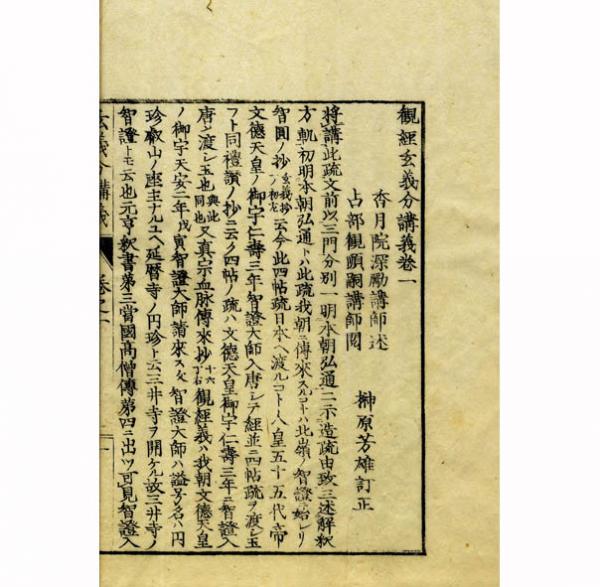 觀經玄義分講義卷一
香月院深勵講師述
占部觀順嗣講師閲
榊原芳雄訂正
將講此疏文前以三門分別一明本朝弘通二示造疏由致三述解釋
方軌初明本朝弘通トハ此疏我朝ニ傳來スルコトハ北嶺ノ智證ニ始レリ
智圓ノ抄玄義抄一ノ初左ニ云今此四帖疏日本ヘ渡ルコトハ人皇五十五代帝
文德天皇ノ御宇仁壽三年智證大師入唐シテ經並ニ四帖疏ヲ渡シ玉
フト同禮讚ノ抄ニ云ク四帖ノ疏ハ文德天皇御宇仁壽三年ニ智證入
唐シ渡シ玉也與此同也又真宗血脉傳來抄十六丁右觀經義ハ我朝文德天皇
ノ御宇天安二年戊寅智證大師請來ス文智證大師ハ謚号名ハ円
珍叡山ノ座主ナルユヘ延暦寺ノ円珍ト云三井寺ヲ開ケル故三井寺ノ
智證トモ云也元亨釋書第三當國高僧傳第四ニ出ツ可見智證入
玄義分講義
卷之一
一